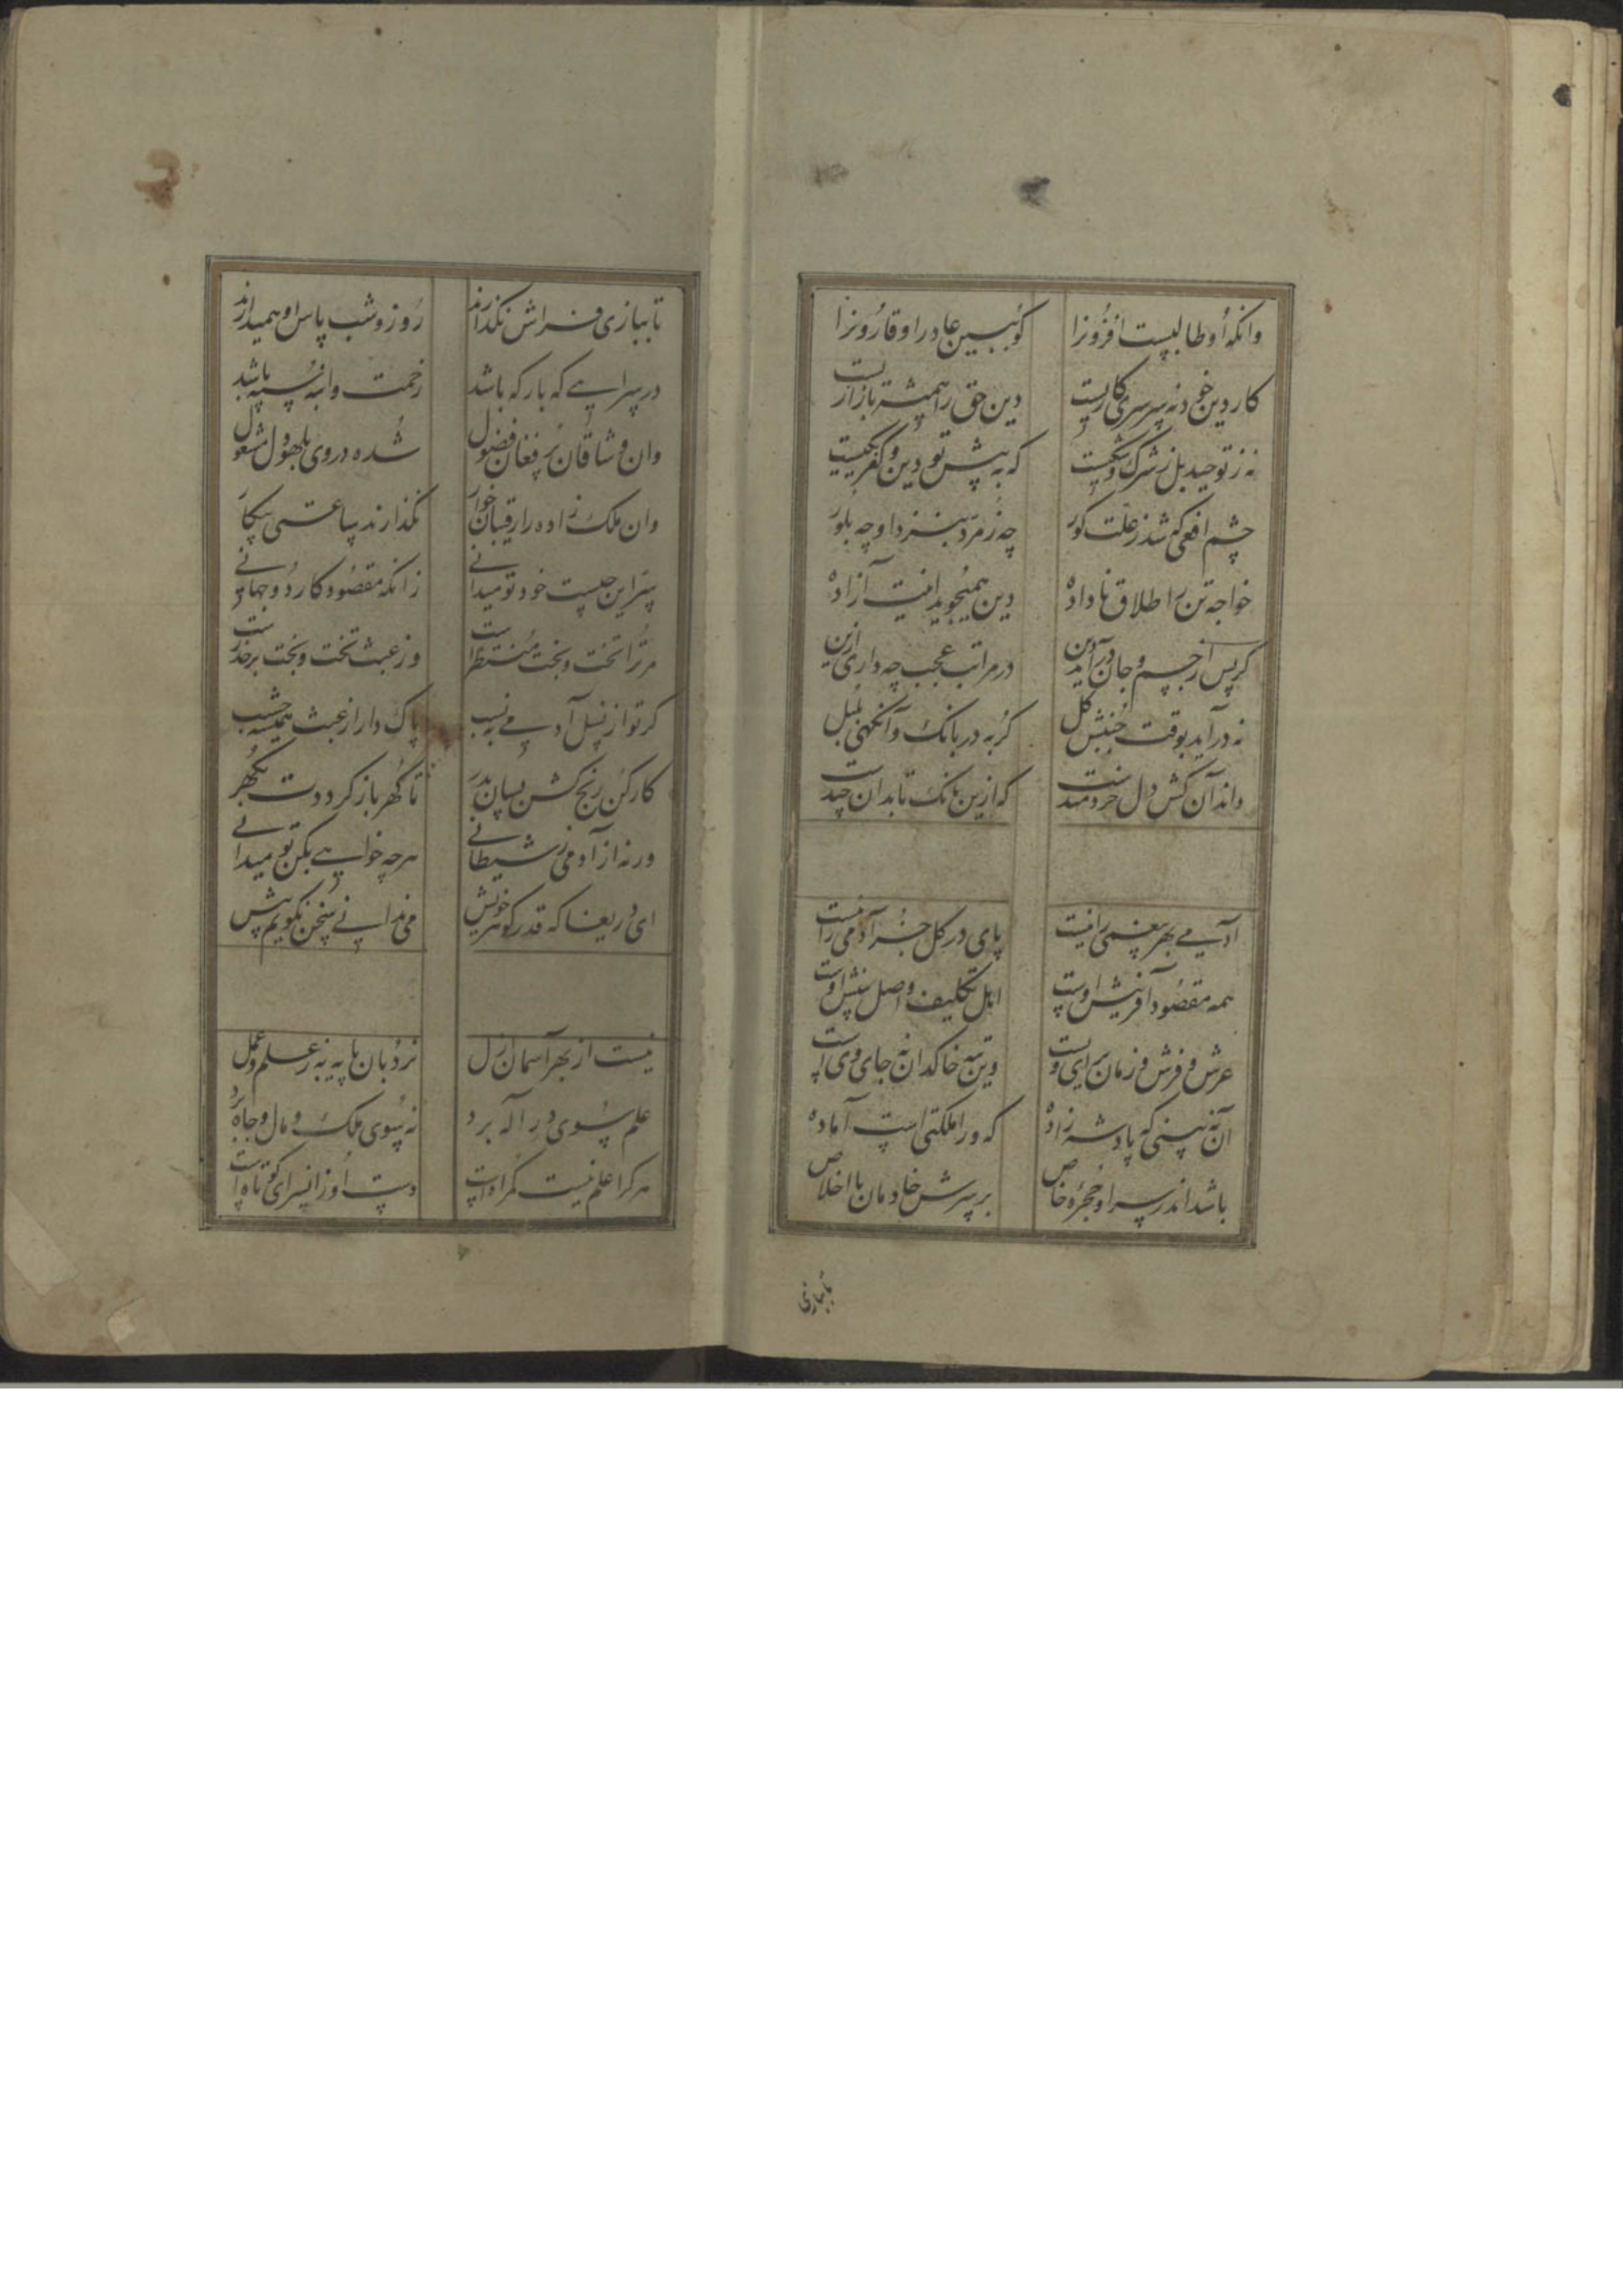 وانکه او طالبست افزونرا گو ببین عاد را و قارونرا
کار دین خود نه سرسری کاریست دین حق را همیشه بازاریست
نه ز توحید بل ز شرک و شکیست که به پیش تو دین و کفر یکیست
چشم افعی که شد ز علت کور چه زمرد بنزد او چه بلور
خواجه تن را طلاق ناداده دین همیجوید اینت آزاده
گر پس از جسم و جان درآید دین در مراتب عجب چه داری ازین
نه درآید بوقت جنبش گل گربه در بانک وآنگهی بلبل
داند آن کش دل خردمندست که ازین بانک تا بدان چندست
آدمی بهر بیغمی را نیست پای در گل جز آدمی را نیست
همه مقصود آفرینش اوست اهل تکلیف و اصل بینش اوست
عرش و فرش و زمان برای ویست وین تبه خاکدان نه جای ویست
آن نه بینی که پادشه زاده که ورا ملکتی است آماده
باشد اندر سرا و حجره خاص بر سرش خادمان با اخلاص
تا ببازی
تا ببازی فراش نگذارند روز و شب پاس او همیدارند
در سرایی که بار که باشد زحمت وانبه سپه باشد
وان وشاقان پر فغان فضول شده در وی بلهو و هول مشغول
وان ملک زاده را رقیبان خوار نگذارند ساعتی بیکار
سر این چیست خود تو میدانی زانکه مقصود کار دو جهانی
مر ترا تخت و بخت منتظرست وز عبث تخت و بخت بر حذرست
گر تو از نسل آدمی به نسب پاک دار از عبث همیشه حسب
کار کن رنج کش بسان پدر تا گهر باز گرددت بگهر
ورنه از آدمی ز شیطانی هرچه خواهی بکن تو میدانی
ای دریغا که قدر گوهر خویش می ندانی سخن نگویم بیش
نیست از بهر آسمان ازل نردبان پایه به ز علم و عمل
علم سوی در اله برد نه سوی ملک و مال و جاه برد
هرکرا علم نیست گمراه است دست او زانسرای کوتاه است